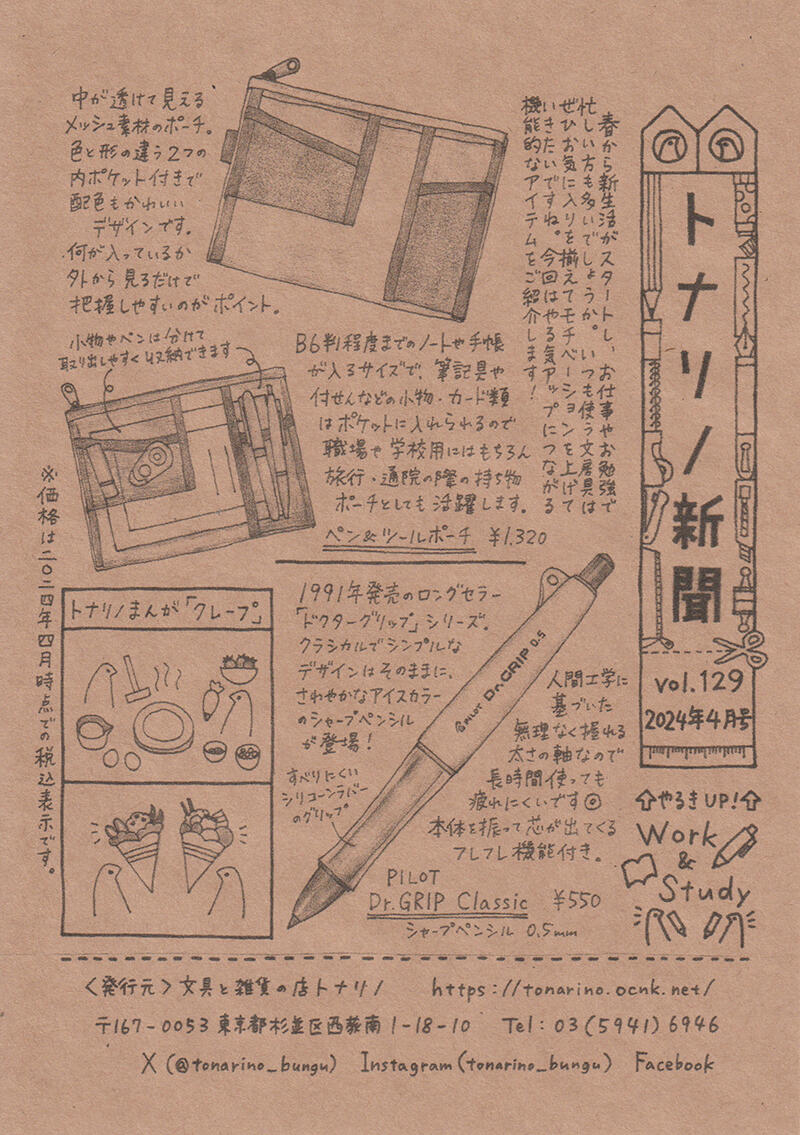 トナリノ新聞
vol.129
2024年4月号
春から新生活がスタートし、お仕事やお勉強で
忙しい方も多いでしょうか。いつも使う文房具は
ぜひお気に入りを揃えてモチベーションを上げて
いきたいですね。今回はやる気アップにつながる
機能的なアイテムをご紹介します!
中が透けて見える
メッシュ素材のポーチ。
色と形の違う2つの
内ポケット付きで
配色もかわいい
デザインです。
何が入っているか
外から見るだけで
把握しやすいのがポイント。
小物やペンは分けて
取り出しやすく収納できます
B6判程度までのノートや手帳
が入るサイズで、筆記具や
付せんなどの小物・カード類
はポケットに入れられるので
職場や学校用にはもちろん
旅行・通院の際の持ち物
ポーチとしても活躍します。
ペン&ツールポーチ ¥1,320
1991年発売のロングセラー
「ドクターグリップ」シリーズ。
クラシカルでシンプルな
デザインはそのままに、
さわやかなアイスカラー
のシャープペンシル
が登場!
すべりにくい
シリコーンラバー
のグリップ
PILOT Dr.GRIP 0.5
人間工学に
基づいた
無理なく握れる
太さの軸なので
長時間使っても
疲れにくいです◎
本体を振って芯が出てくる
フレフレ機能付き。
PILOT
Dr.GRIP Classic ¥550
シャープペンシル 0.5mm
⇧やるきUP!⇧
Work
&
Study
トナリノまんが「クレープ」
※価格は二〇二四年四月時点での税込表示です。
〈発行元〉文具と雑貨の店トナリノ https://tonarino.ocnk.net/
〒167-0053 東京都杉並区西荻南1-18-10 Tel: 03(5941)6946
X(@tonarino_bungu) Instagram(tonarino_bungu) Facebook